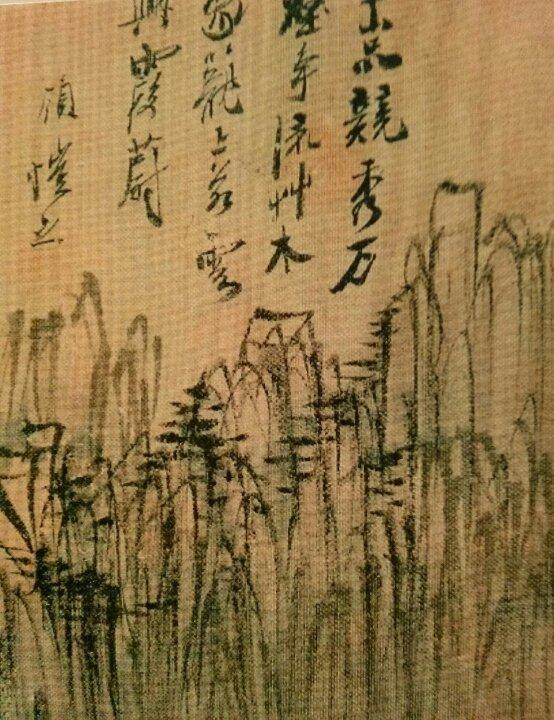 嵓競秀万
壑争流艸木
蒙籠上若雲
興霞蔚
顧愷之